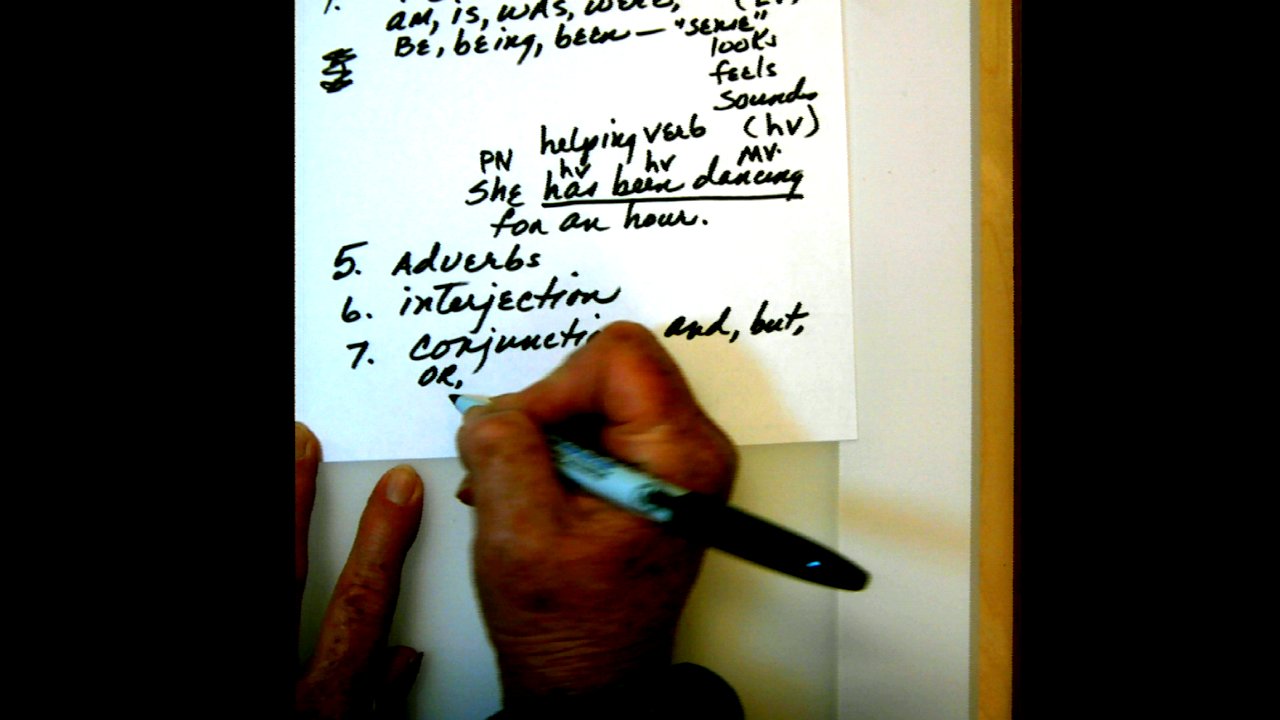 am, is, was, were,
Be, being, been — "sense"
looks
feels
sounds
helping verb (hv)
PN hv hv MV.
She has been dancing
for an hour.
5. Adverbs
6. interjection
7. conjuncti and, but,
OR,